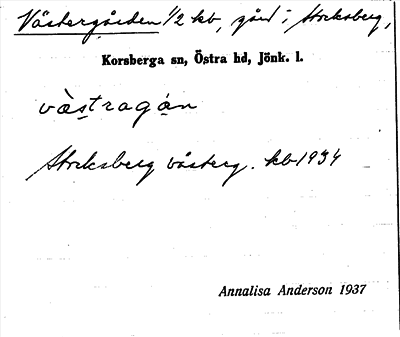 Västergården 1/2 kb, gård i Stocksberg,
Korsberga sn, Östra hd, Jönk. l.
và̤stragán
Stocksberg västerg. kb 1934
Annalisa Anderson 1937